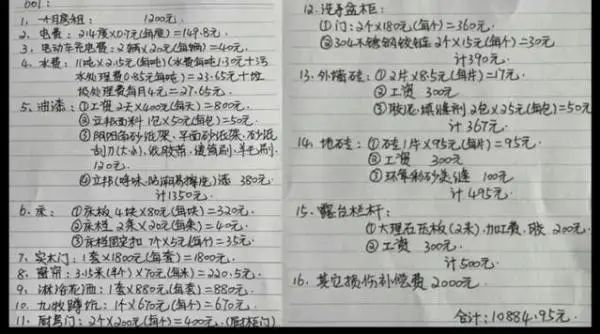 001:
1、一个月房租: 1200元.
2、电费: 214度×0.7元(每度)=149.8元.
3、电动车充电费: 2辆×20元(每辆)=40元.
4、水费: 11吨×2.15元(每吨)(水费每吨1.30元+污
水处理费0.85元每吨)=23.65元+垃
圾处理费每月4元=27.65元.
5、油漆: ①工资 2天×400元(每天)=800元.
②立邦面料1包×50元(每包)=50元
③阴阳角砂纸架、平面砂纸架、砂纸
刮刀(大小)、收胶带、建筑刷、羊毛刷.
120元.
④立邦(净味、防潮易擦洗)漆 380元.
计1350元.
6、床: ①床板4块×80元(每块)=320元.
②床档 2条×20元(每条)=40元.
③床档固定扣 7个×5元(每个)=35元.
7、实木门: 1套×1800元(每套)=1800元.
8、窗帘: 3.15米(半个)×70元(每米)=220.5元.
9、淋浴花洒: 1套×880元(每套)=880元.
10、九牧蹲坑: 1个×670元(每个)=670元.
11、厨具门: 2个×200元(每个)=400元.(厨柜门)
12.洗手盆柜:
①门: 2个×180元(每个)=360元.
②304不锈钢铰链 2个×15元(每个)=30元
计390元.
13.外墙砖: ①2片×8.5元(每片)=17元.
②工资 300元
③胶泥、填缝剂 2包×25元(每包)=50元
计367元.
14、地砖: ①砖1片×95元(每片)=95元.
②工资 300元
③环氧彩砂美缝 100元
计495元.
15、露台栏杆:
①大理石压板(2米).加工费、胶 200元.
②工资 300元.
计500元.
16、其它损伤补偿费 2000元.
合计: 10884.95元.